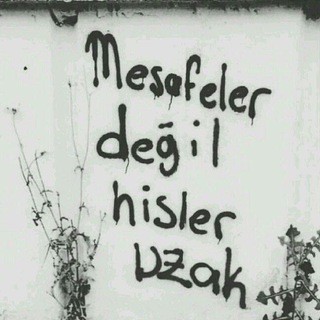 Mesafeler
değil
hisler
uzak